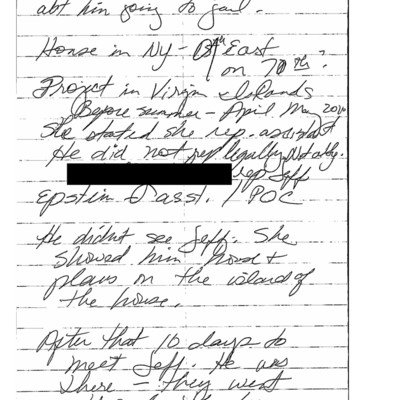 abt him going to jail.
House in NY - 9th East
on 70th?
Project in Virgin Islands
Before summer - April May
She stated she rep. assistant
He did not rep legally Notably.
rep Jeff
Epstin Asst. / POC
He didnt see Jeff. She
showed him house +
plans on the island of
the house.
After that 10 days to
meet Jeff. He was
there - they went